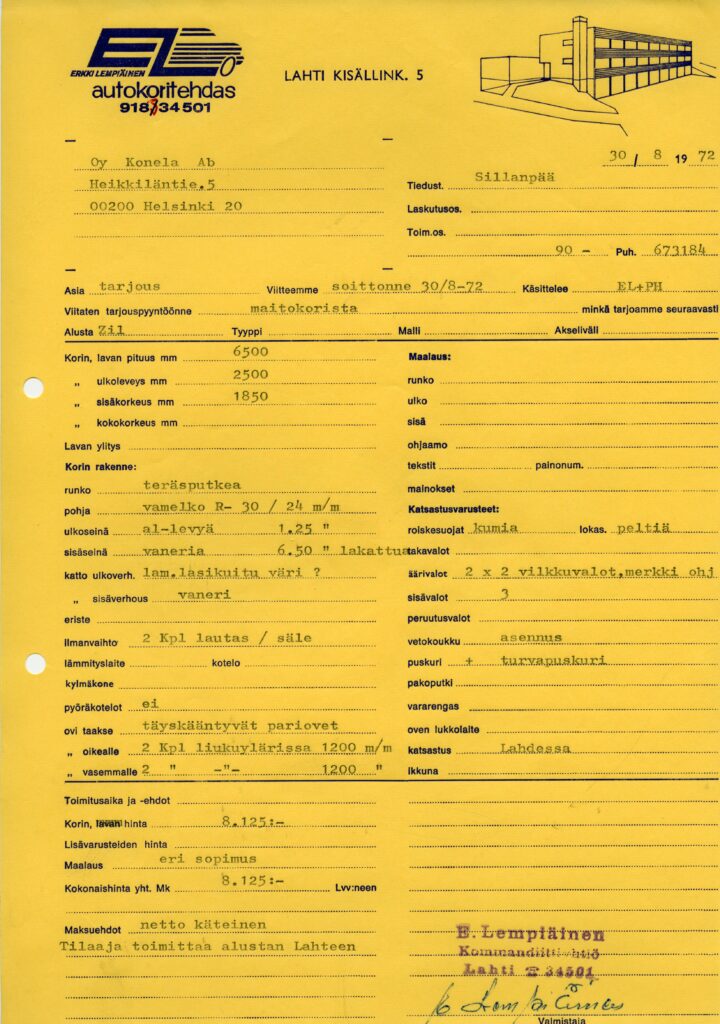 EL
ERKKI LEMPIÄINEN
autokoritehdas
918 34501
LAHTI KISÄLLINK. 5
30 / 8 19 72
Oy Konela Ab
Heikkiläntie.5
00200 Helsinki 20
Tiedust. Sillanpää
Laskutusos.
Toim.os.
90 - Puh. 673184
Asia tarjous Viitteemme soittonne 30/8-72 Käsittelee EL+PH
Viitaten tarjouspyyntöönne maitokorista minkä tarjoamme seuraavasti
Alusta Zil Tyyppi Malli Akseliväli
Korin, lavan pituus mm 6500
„ ulkoleveys mm 2500
„ sisäkorkeus mm 1850
„ kokokorkeus mm
Lavan ylitys
Korin rakenne:
runko teräsputkea
pohja vamelko R- 30 / 24 m/m
ulkoseinä al-levyä 1.25 "
sisäseinä vaneria 6.50 " lakattua
katto ulkoverh. lam.lasikuitu väri ?
„ sisäverhous vaneri
eriste
Ilmanvaihto 2 Kpl lautas / säle
lämmityslaite kotelo
kylmäkone
pyöräkotelot ei
ovi taakse täyskääntyvät pariovet
„ oikealle 2 Kpl liukuylärissa 1200 m/m
„ vasemmalle 2 " -"- 1200 "
Maalaus:
runko
ulko
sisä
ohjaamo
tekstit painonum.
mainokset
Katsastusvarusteet:
roiskesuojat kumia lokas. peltiä
takavalot
äärivalot 2 x 2 vilkkuvalot,merkki ohj
sisävalot 3
peruutusvalot
vetokoukku asennus
puskuri + turvapuskuri
pakoputki
vararengas
oven lukkolaite
katsastus Lahdessa
ikkuna
Toimitusaika ja -ehdot
Korin, lavan hinta 8.125:-
Lisävarusteiden hinta
Maalaus eri sopimus
Kokonaishinta yht. Mk 8.125:- Lvv:neen
Maksuehdot netto käteinen
Tilaaja toimittaa alustan Lahteen
E. Lempiäinen
Kommandiittiyhtiö
Lahti ☎ 34501
Valmistaja